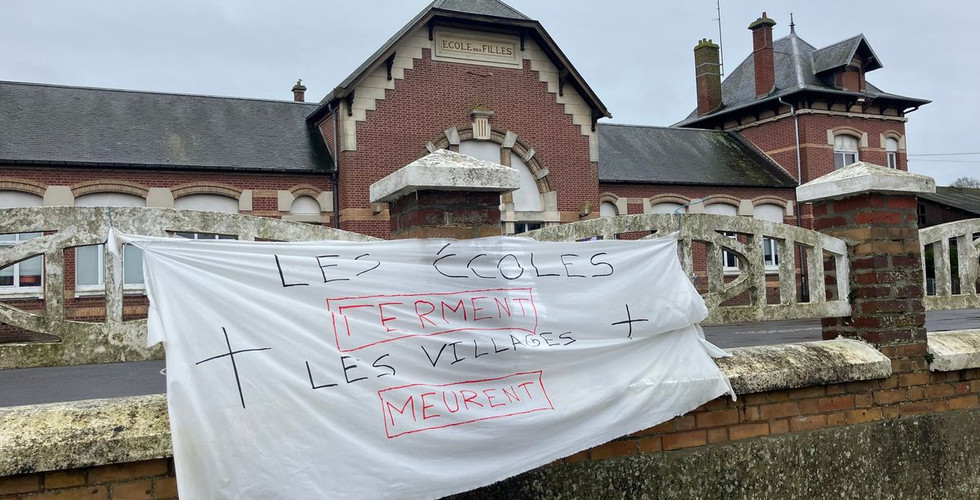 ECOLE DES FILLES
LES ÉCOLES
FERMENT
LES VILLAGES
MEURENT